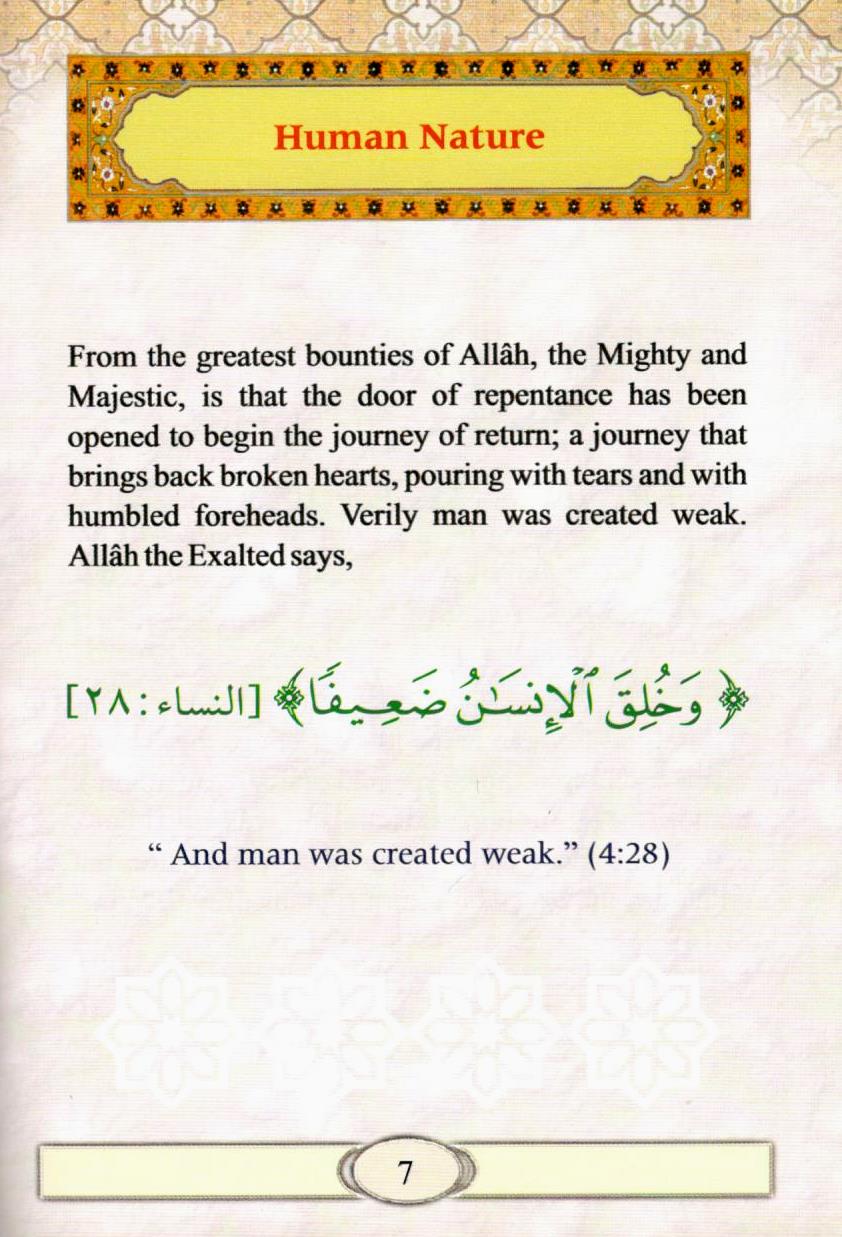 Human Nature
From the greatest bounties of Allâh, the Mighty and
Majestic, is that the door of repentance has been
opened to begin the journey of return; a journey that
brings back broken hearts, pouring with tears and with
humbled foreheads. Verily man was created weak.
Allâh the Exalted says,
﴿ وَخُلِقَ ٱلْإِنسَـٰنُ ضَعِيفًا﴾ [النساء: ٢٨]
“ And man was created weak.” (4:28)
7